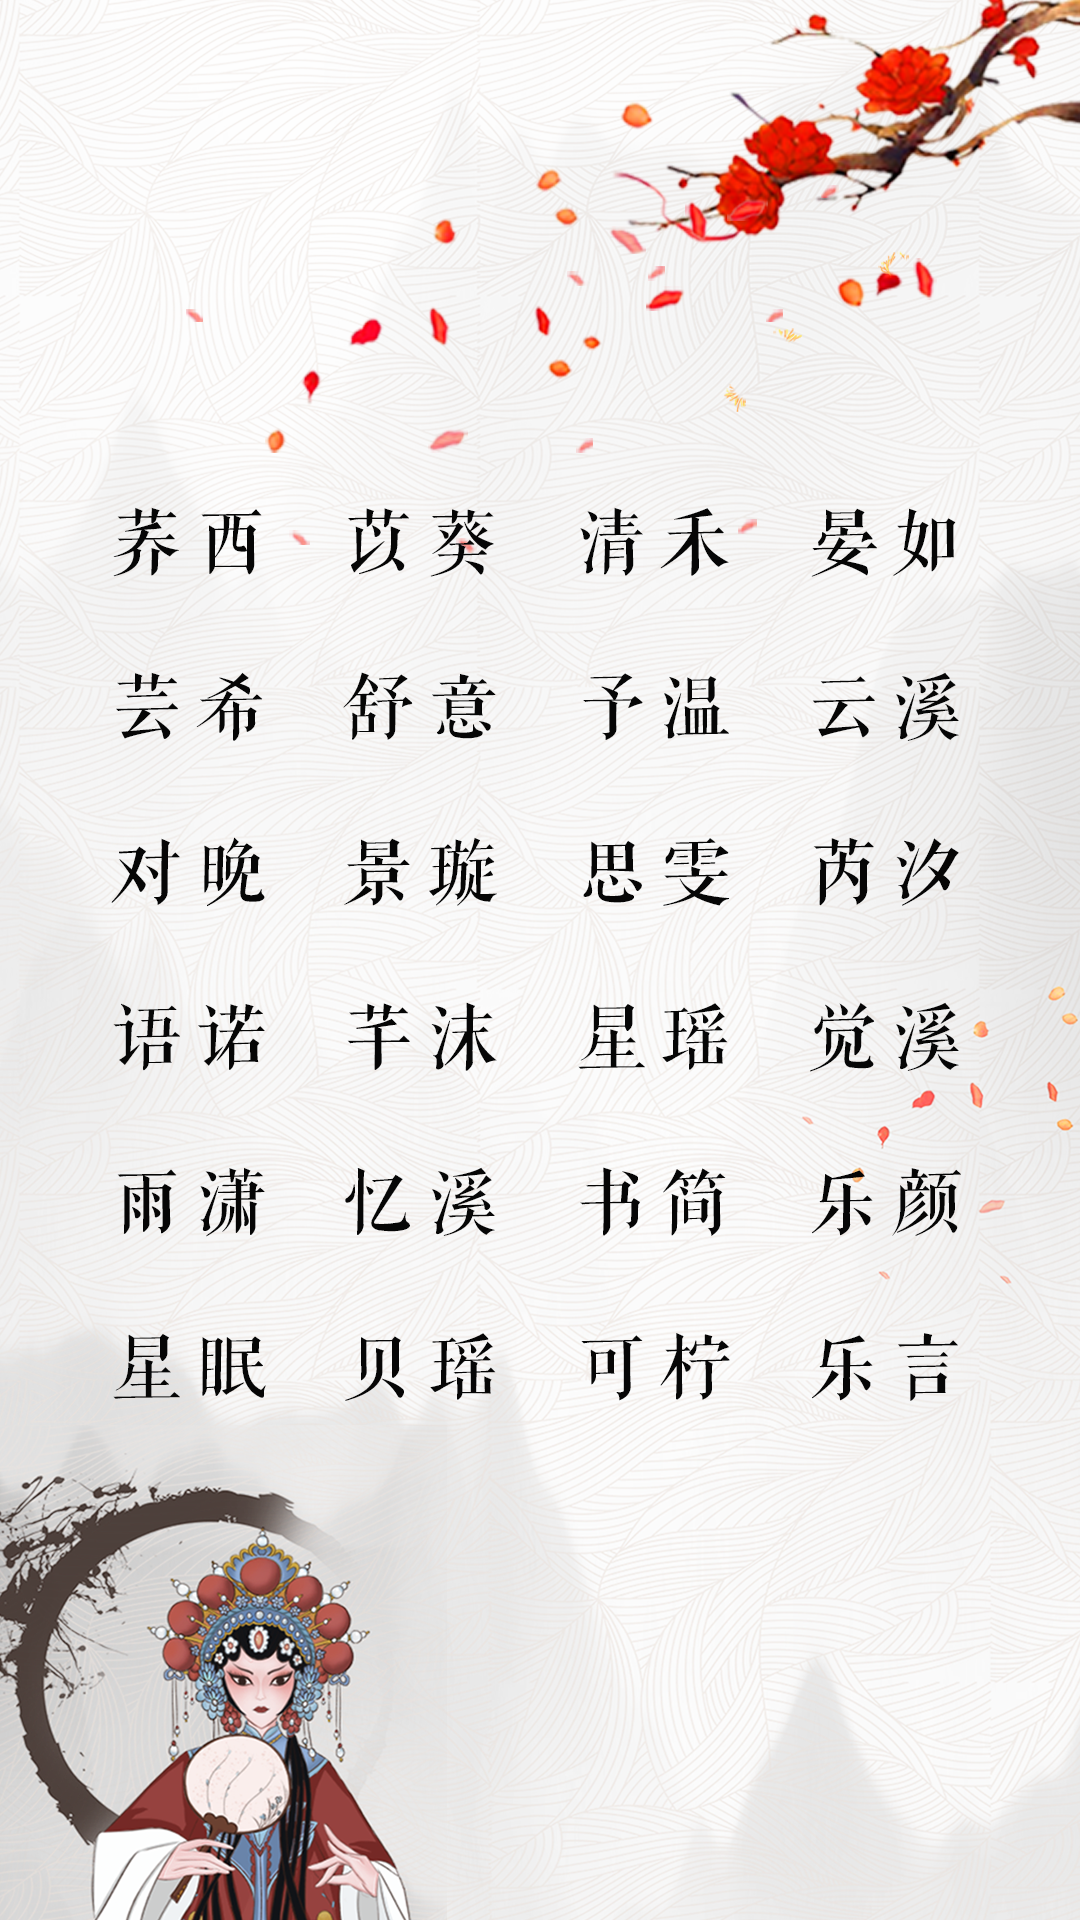 荞西 苡葵 清禾 晏如
芸希 舒意 予温 云溪
对晚 景璇 思雯 芮汐
语诺 芊沫 星瑶 觉溪
雨潇 忆溪 书简 乐颜
星眠 贝瑶 可柠 乐言